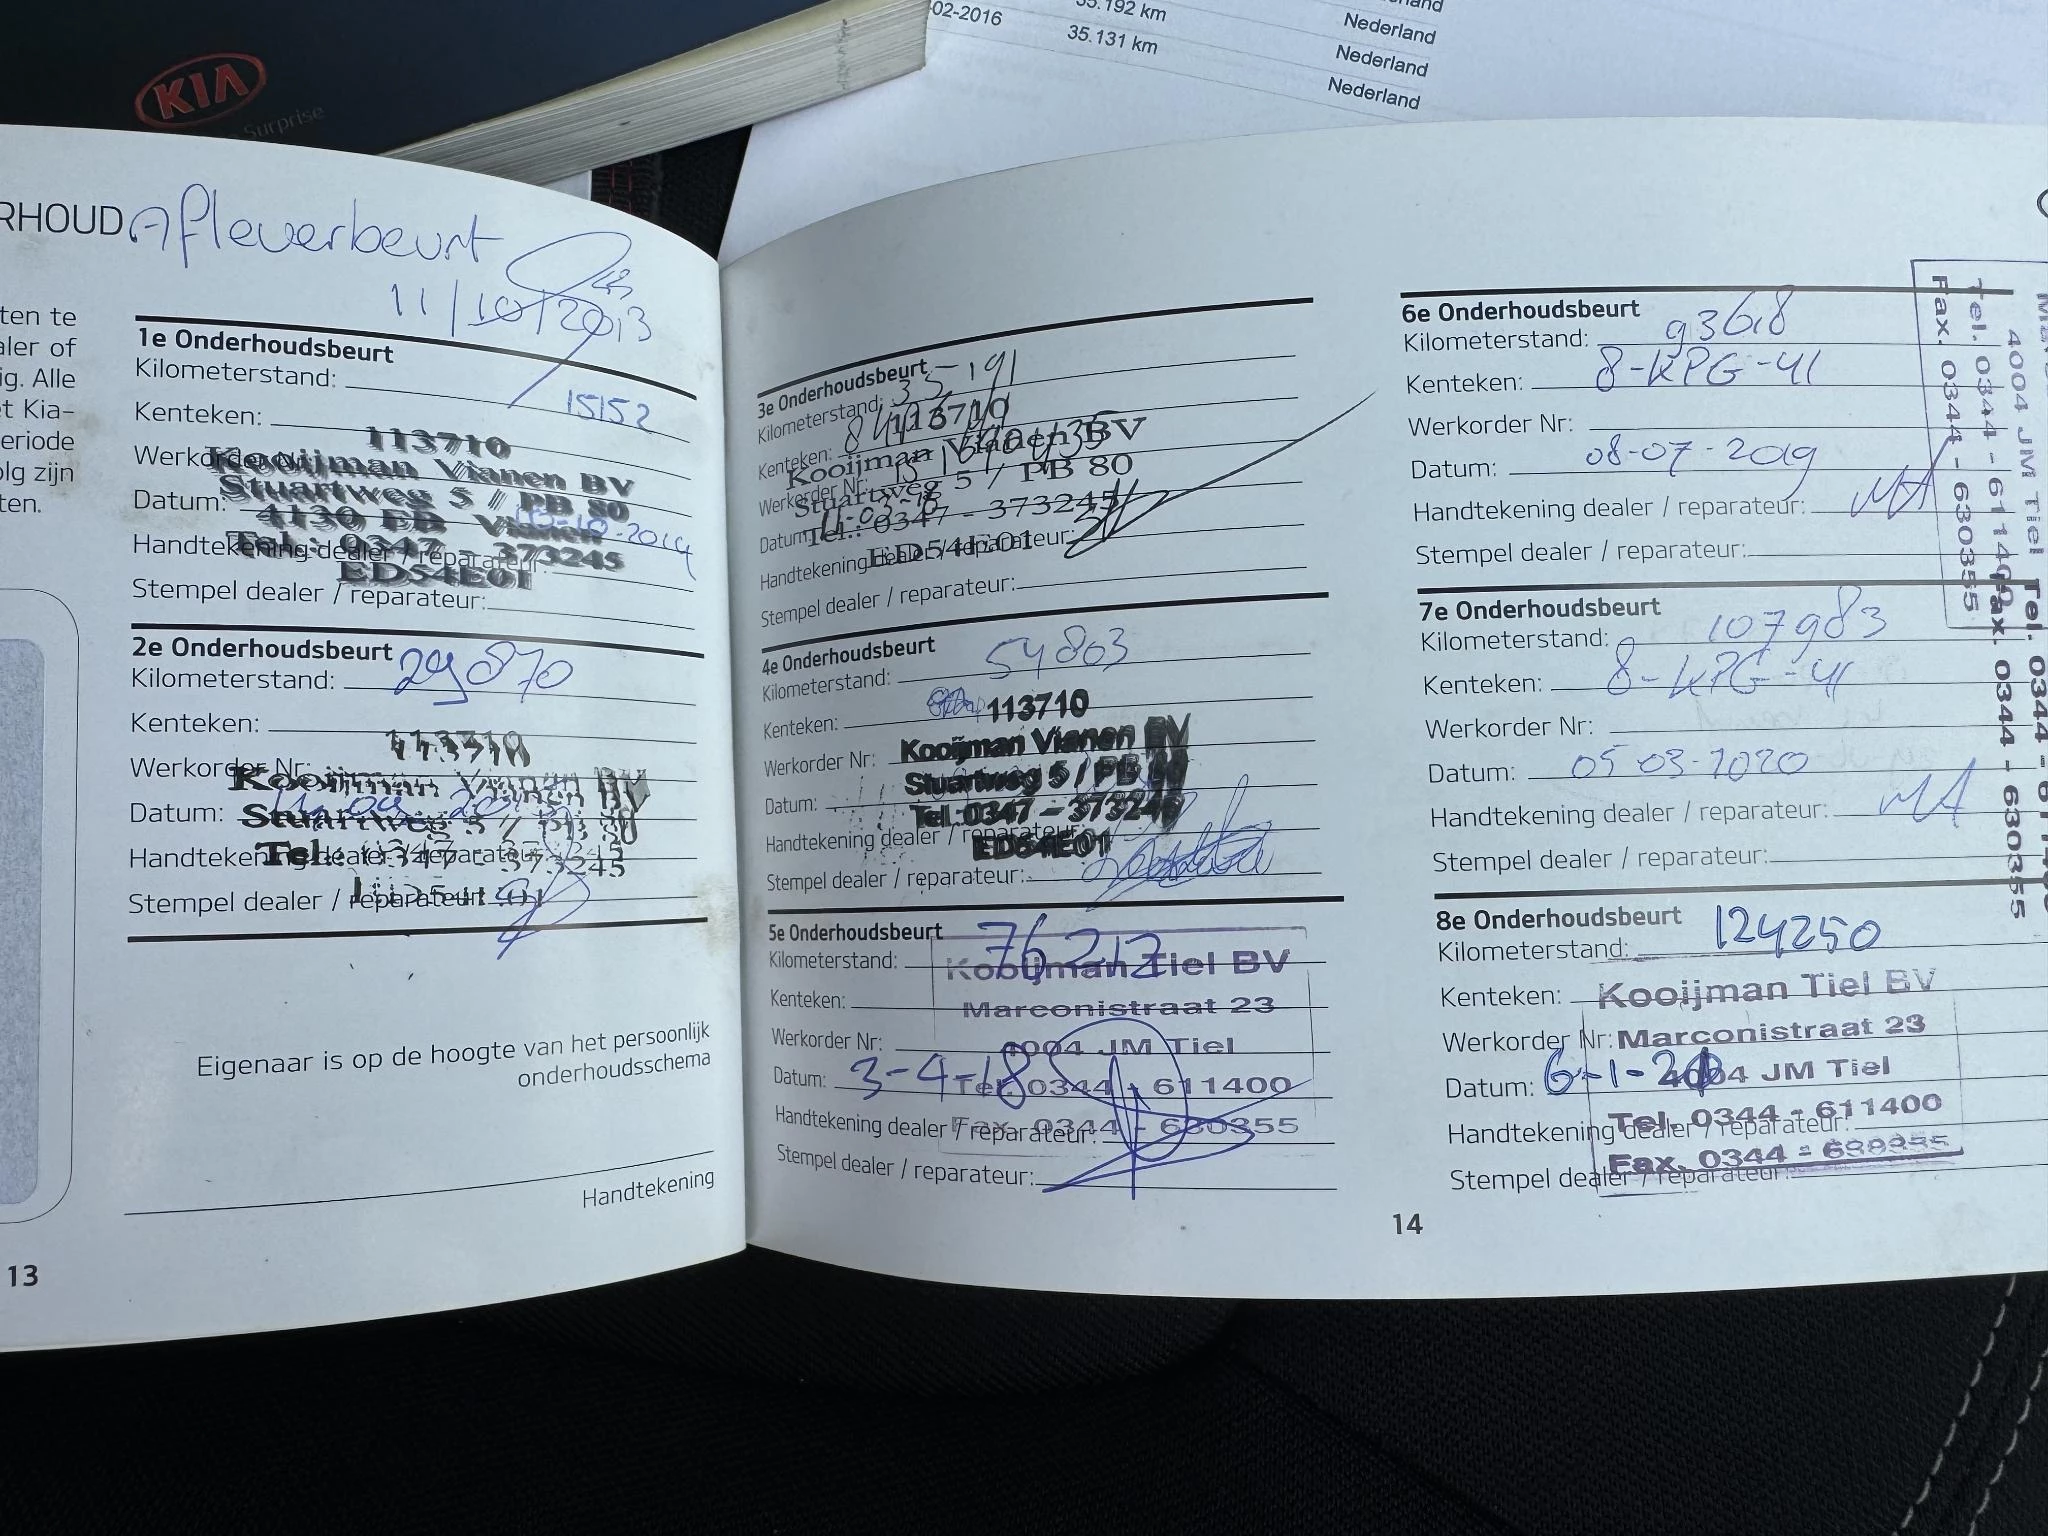 KIA
Surprise
02-2016 35.192 km Nederland
35.131 km Nederland
Nederland
Nederland
RHOUD Afleverbeurt
11/10/2013
ten te
aler of
ig. Alle
et Kia-
eriode
olg zijn
ten.
1e Onderhoudsbeurt
Kilometerstand: 15152
Kenteken:
113710
Werkorder Nr:
Kooijman Vianen BV
Stuartweg 5 / PB 80
Datum: -2014
4130 ED Vianen
Tel.: 0347 - 373245
Handtekening dealer / reparateur:
ED54E01
Stempel dealer / reparateur:
2e Onderhoudsbeurt
Kilometerstand: 29870
Kenteken:
113710
Werkorder Nr:
Kooijman Vianen BV
Datum:
Stuartweg 5 / PB 80
Tel.: 0347 - 373245
Handtekening dealer / reparateur:
Stempel dealer / reparateur:
Eigenaar is op de hoogte van het persoonlijk
onderhoudsschema
Handtekening
13
3e Onderhoudsbeurt
Kilometerstand: 35-191
113710
Kenteken:
Kooijman Vianen BV
Werkorder Nr:
Stuartweg 5 / PB 80
Datum:
Tel.: 0347 - 373245
Handtekening dealer / reparateur:
ED54E01
Stempel dealer / reparateur:
4e Onderhoudsbeurt
Kilometerstand: 54803
Kenteken:
113710
Werkorder Nr:
Kooijman Vianen BV
Stuartweg 5 / PB 80
Datum:
Tel.:0347 - 373245
Handtekening dealer / reparateur:
ED54E01
Stempel dealer / reparateur:
5e Onderhoudsbeurt
Kilometerstand: 76212
Kooijman Tiel BV
Kenteken:
Marconistraat 23
Werkorder Nr:
4004 JM Tiel
Datum: 3-4-18
Tel. 0344 - 611400
Handtekening dealer / reparateur:
Fax. 0344 - 630355
Stempel dealer / reparateur:
6e Onderhoudsbeurt
Kilometerstand: 93618
Kenteken: 8-KPG-41
Werkorder Nr:
Datum: 08-07-2019
Handtekening dealer / reparateur: MA
Stempel dealer / reparateur:
4004 JM Tiel
Tel. 0344 - 611400
Fax. 0344 - 630355
7e Onderhoudsbeurt
Kilometerstand: 107983
Kenteken: 8-KPG-41
Werkorder Nr:
Datum: 05-03-2020
Handtekening dealer / reparateur: MA
Stempel dealer / reparateur:
Tel. 0344 - 
Fax. 0344 - 630355
8e Onderhoudsbeurt
Kilometerstand: 124250
Kenteken:
Kooijman Tiel BV
Werkorder Nr:
Marconistraat 23
Datum: 6-1-21
4004 JM Tiel
Tel. 0344 - 611400
Handtekening dealer / reparateur:
Fax. 0344 - 630355
Stempel dealer / reparateur:
14